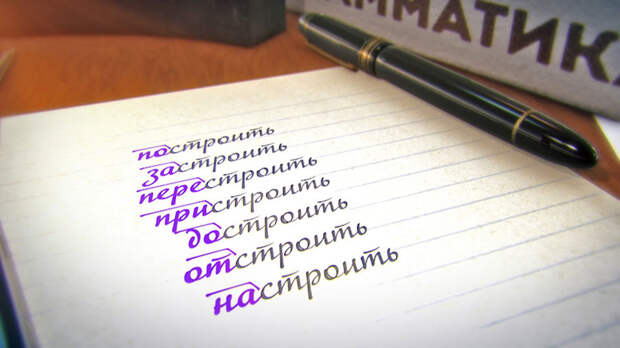 АММАТИКА
построить
застроить
перестроить
пристроить
достроить
отстроить
настроить